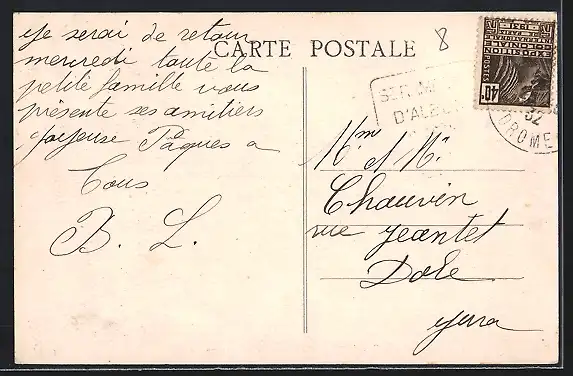 CARTE POSTALE
8
Je serai de retour
mercredi toute la
petite famille vous
présente ses amitiers
Joyeuse Pâques a
Tous
B. L.
Mm et Mr
Chauvin
rue Jeantet
Dole
Jura
EXPOSITION
COLONIALE
INTERNATIONALE
PARIS 1931
POSTES
40
D'AL
32
DROME